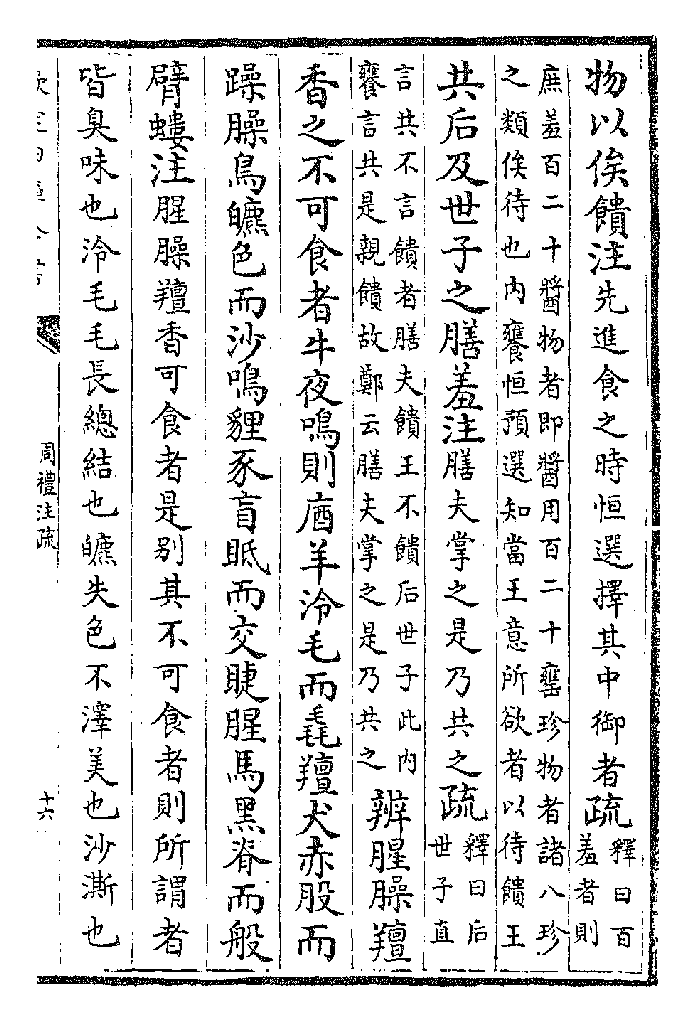 物以俟饋注先進食之時恒選擇其中御者疏釋曰百
羞者則
庶羞百二十醬物者即醬用百二十罋珍物者諸八珍
之類俟待也内饔恒預選知當王意所欲者以待饋王
共后及世子之膳羞注膳夫掌之是乃共之疏釋曰后
世子直
言共不言饋者膳夫饋王不饋后世子此内
饔言共是親饋故鄭云膳夫掌之是乃共之
辨腥臊羶
香之不可食者牛夜鳴則庮羊泠毛而毳羶犬赤股而
躁臊鳥皫色而沙鳴貍豕盲眡而交睫腥馬黑脊而般
臂螻注腥臊羶香可食者是别其不可食者則所謂者
皆臭味也泠毛毛長總結也皫失色不澤美也沙澌也
周禮注疏
十六